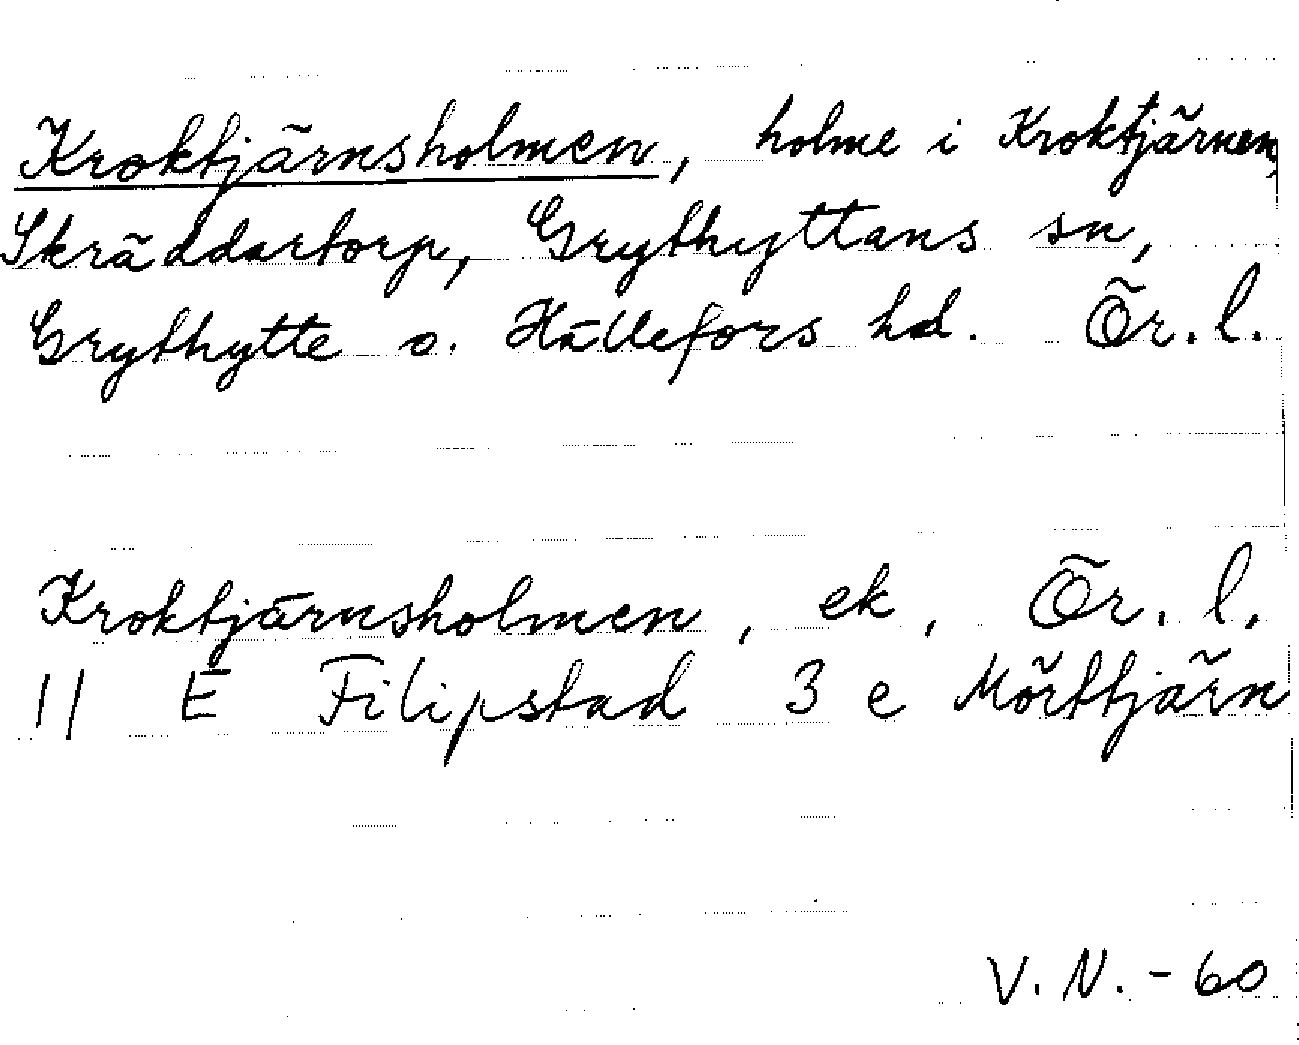 Kroktjärnsholmen, holme i Kroktjärnen,
Skräddartorp, Grythyttans sn,
Grythytte o. Hällefors hd. Ör. l.
Kroktjärnsholmen, ek, Ör. l.
11 E Filipstad 3 e Mörttjärn
V. N. - 60